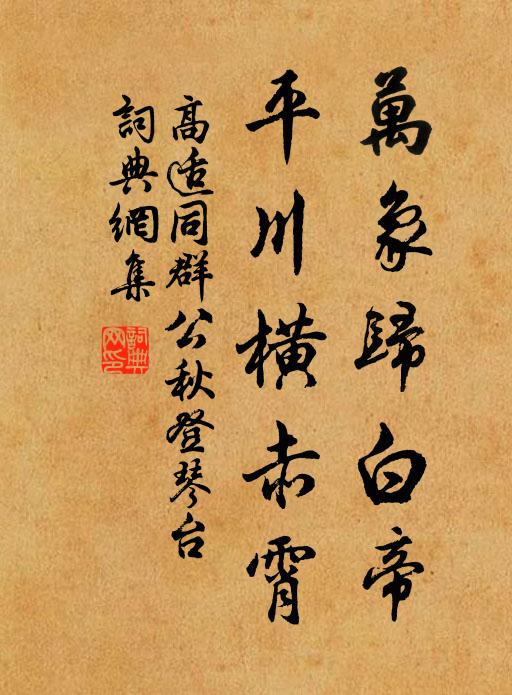 萬象歸白帝
平川橫赤霄
高适同群公秋登琴台
詞典網集
詞典網印